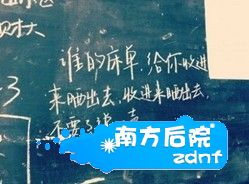 谁的床单,给你收进
来晒出去,收进来晒出去,
不要了
南方后院
zdnf